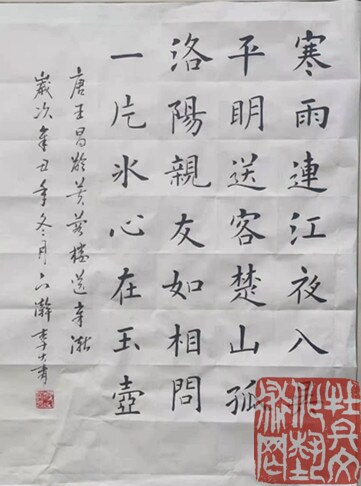 寒雨連江夜入
平明送客楚山孤
洛陽親友如相問
一片冰心在玉壺
唐王昌齡芙蓉樓送辛漸
歲次辛丑年冬月